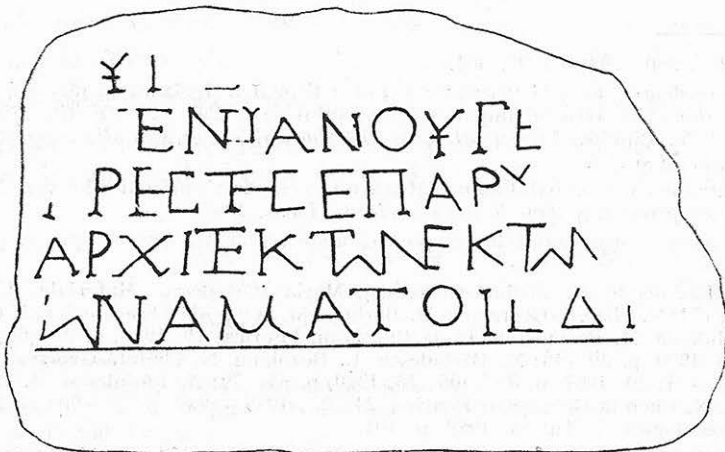 Υ Ι
ΙΕΝΥΑΝΟΥΓΕ
ΡΙΕСΤLΕΠΑΡΥ
ΑΡΧΙΤΕΚΤΩΝΕΚΤΩ
ΩΝΑΜΑΤΟΙΓΔ